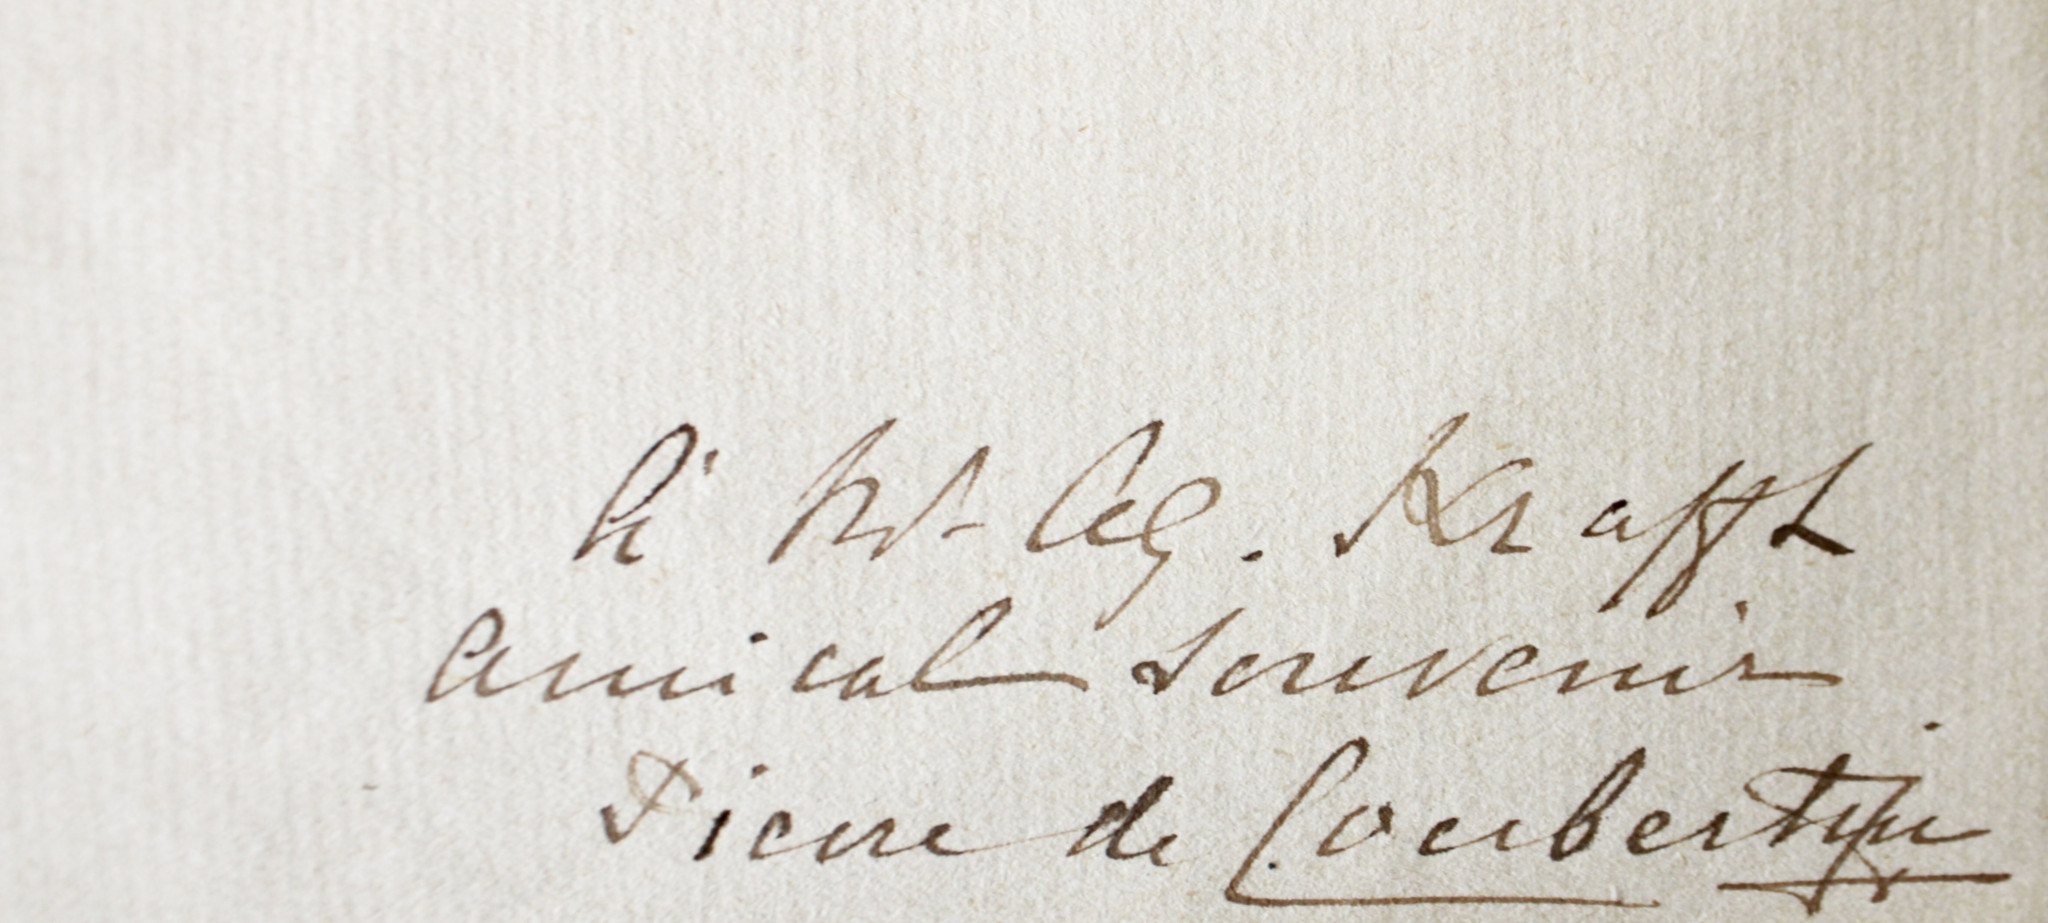 à Mr Ag. Krafft
amical souvenir
Pierre de Coubertin